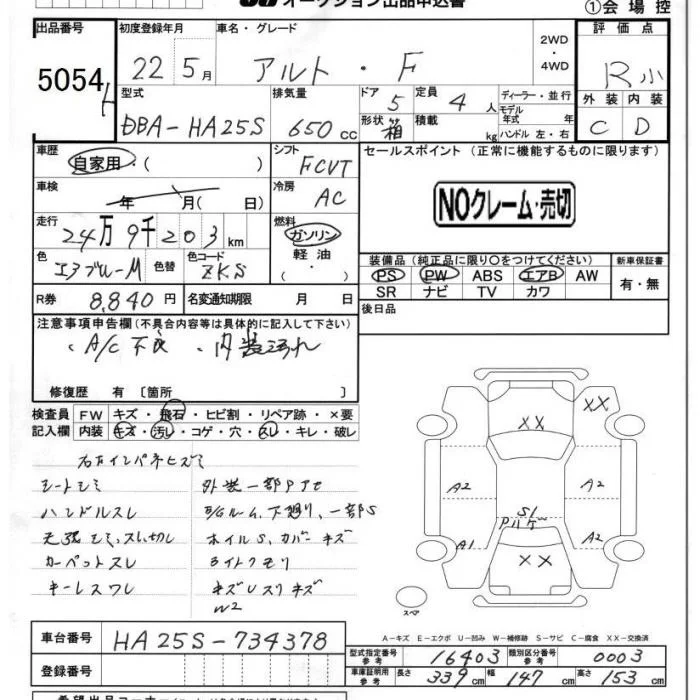 オークション出品申込書
①会場控
出品番号 初度登録年月 車名・グレード 2WD・4WD 評価点
5054 22 5月 アルト・F R小
型式 排気量 ドア 5 定員 4人 ディーラー・並行 外装 内装
DBA-HA25S 650cc 形状 箱 積載 kg モデル年式 年 ハンドル 左・右 C D
車歴 自家用・( ) シフト FCVT セールスポイント (正常に機能するものに限ります)
車検 年 月( 日) 冷房 AC
NOクレーム・売切
走行 24万9千203km 燃料 ガソリン・軽油・( )
色 エアブルーM 色替 色コード ZKS
装備品 (純正品に限り○をつけてください) 新車保証書
PS PW ABS エアB AW 有・無
SR ナビ TV カワ
R券 8,840円 名変通知期限 月 日 後日品
注意事項申告欄 (不具合内容等は具体的に記入して下さい)
・A/C不良 ・内装汚れ
修復歴 有 〔箇所 〕
検査員記入欄 FW キズ・飛石・ヒビ割・リペア跡・×要
内装 キズ・汚レ・コゲ・穴・スレ・キレ・破レ
右右インパネヒズミ
シートシミ 外装一部アセ
ハンドルスレ E/Gルーム、下廻り、一部S
天張シミ、スレ、切レ ホイルS、カバーキズ
カーペットスレ ライトクモリ
キーレスワレ キズUスリキズ
W2
XX XX
A2 A2
S1
P ハゲ
A1 A2
XX
スペア
A-キズ E-エクボ U-凹み W-補修跡 S-サビ C-腐食 XX-交換済
車台番号 HA25S-734378
型式指定番号 参考 16403 類別区分番号 参考 0003
登録番号 車庫証明用 参考 長さ 339cm 幅 147cm 高さ 153cm